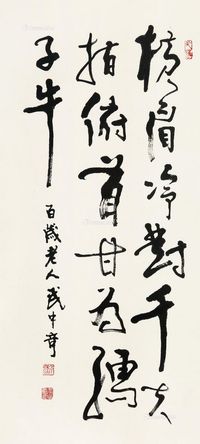 横眉冷对千夫
指俯首甘为孺
子牛
百歲老人武中奇